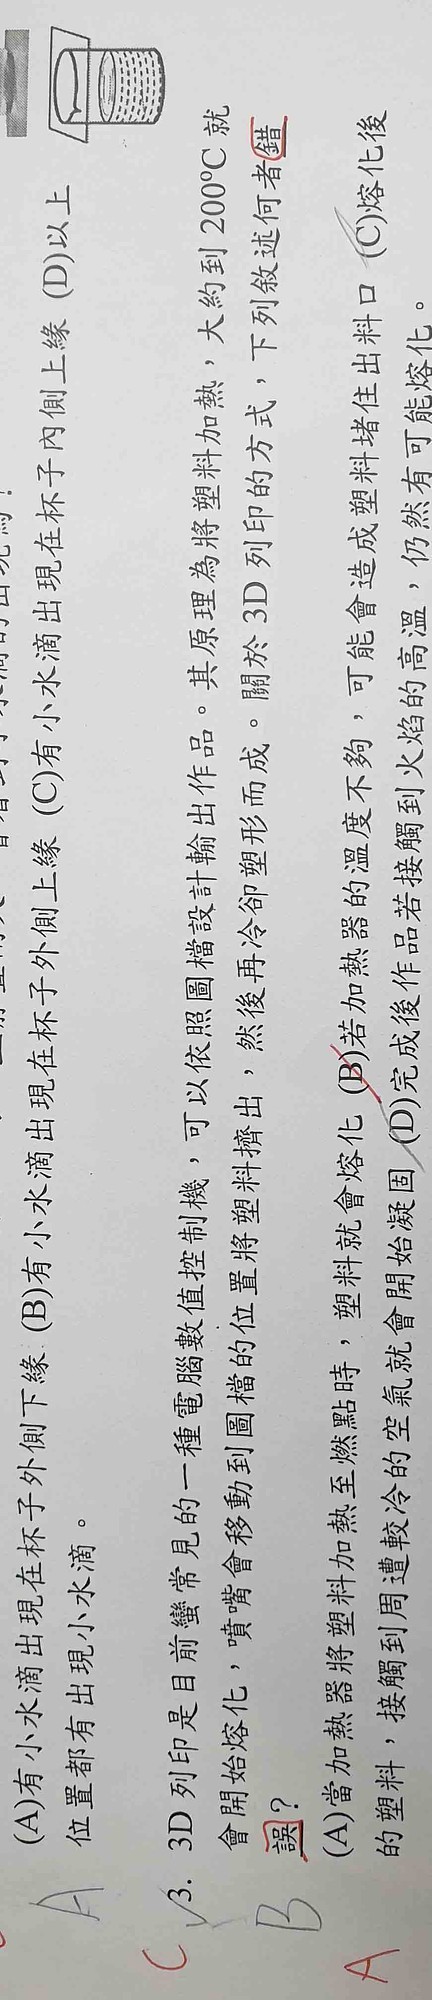 (A)有小水滴出現在杯子外側下緣 (B)有小水滴出現在杯子外側上緣 (C)有小水滴出現在杯子內側上緣 (D)以上
位置都有出現小水滴。
A
C
3. 3D列印是目前蠻常見的一種電腦數值控制機，可以依照圖檔設計輸出作品。其原理為將塑料加熱，大約到200°C就
會開始熔化，噴嘴會移動到圖檔的位置將塑料擠出，然後再冷卻塑形而成。關於3D列印的方式，下列敘述何者錯
誤？
B
(A)當加熱器將塑料加熱至燃點時，塑料就會熔化 (B)若加熱器的溫度不夠，可能會造成塑料堵住出料口 (C)熔化後
的塑料，接觸到周遭較冷的空氣就會開始凝固 (D)完成後作品若接觸到火焰的高溫，仍然有可能熔化。
A